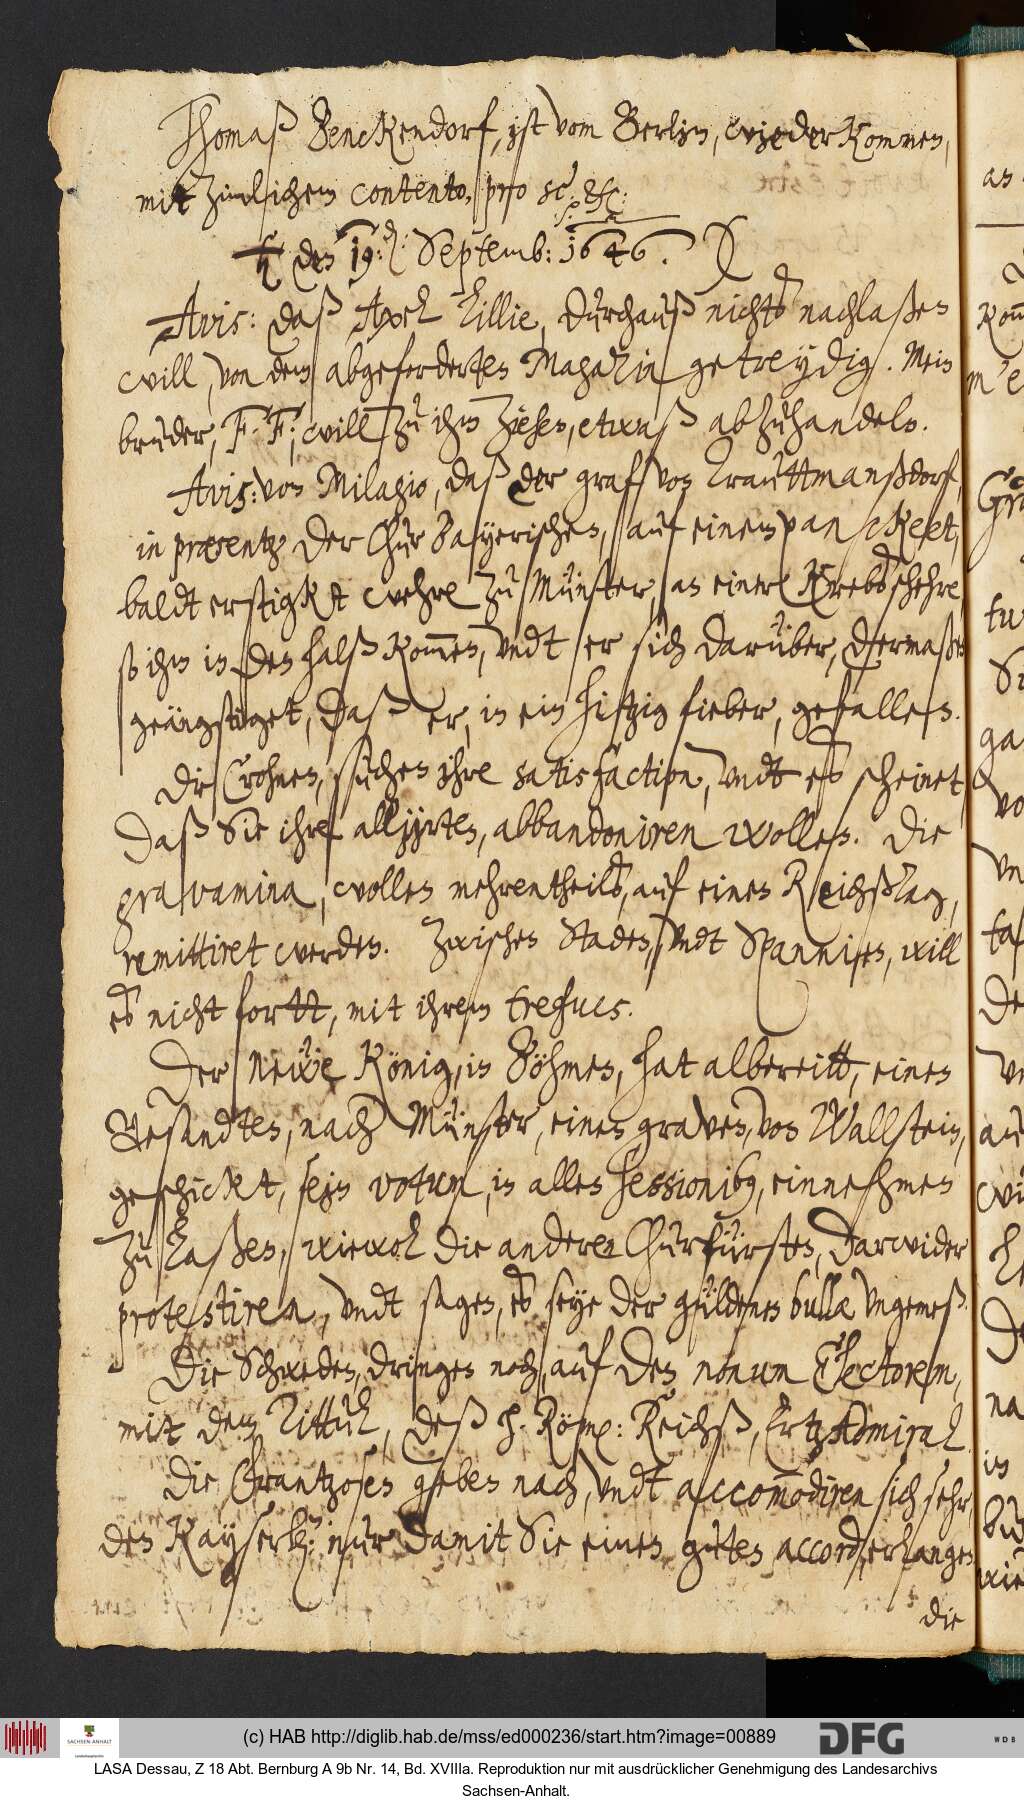 Thomaß Benckendorf, ist vom Berlin, wieder kommen,
mit zimlichem contento, pro sc. &c:
♄ den 19:den Septemb: 1646.
Avis: daß Axel Lillie, durchauß nichts nachlaßen
will, von dem abgeforderten Magazin getreydig. Mein
bruder, F. F; will zu ihm ziehen, etwaß abzuhandeln.
Avis: von Milagio, daß der graf von Trauttmanßdorf,
in præsentz der Chur Bayerischen, auf einem panckeet,
baldt erstigkt wehre zu Münster, an einer Krebßschehre
so ihm in den halß kommen, undt er sich darüber, dermaßen
geängstiget, daß er, in ein hitzig fieber, gefallen.
Die Crohnen, suchen ihre satisfaction, undt es scheinet,
daß Sie ihre alljirten, abbandoniren wollen. Die
gravamina, wollen mehrentheils, auf einen Reichßtag,
remittiret werden. Zwischen Staden, undt Spannien, will
es nicht fortt, mit ihrem trefues.
Der Newe König, in Böhmen, hat albereitt, einen
Gesandten, nach Münster, einen graven, von Wallstein,
geschickt, sein votum, in allen sessionibus, einnehmen
zu laßen, wiewol die anderen Churfürsten, darwider
protestiren, undt sagen, es seye der güldenen bullæ ungemeß.
Die Schweden, dringen noch, auf den nonum Electorem,
mit dem Tittul, deß h. Röm: Reichß, Ertz Admiral.
Die Frantzosen geben nach, undt accommodiren sich sehr,
den Kayserl: nur damit Sie einen guten accord, erlangen
die
(c) HAB http://diglib.hab.de/mss/ed000236/start.htm?image=00889
SACHSEN-ANHALT
DFG
WDB
LASA Dessau, Z 18 Abt. Bernburg A 9b Nr. 14, Bd. XVIIIa. Reproduktion nur mit ausdrücklicher Genehmigung des Landesarchivs
Sachsen-Anhalt.